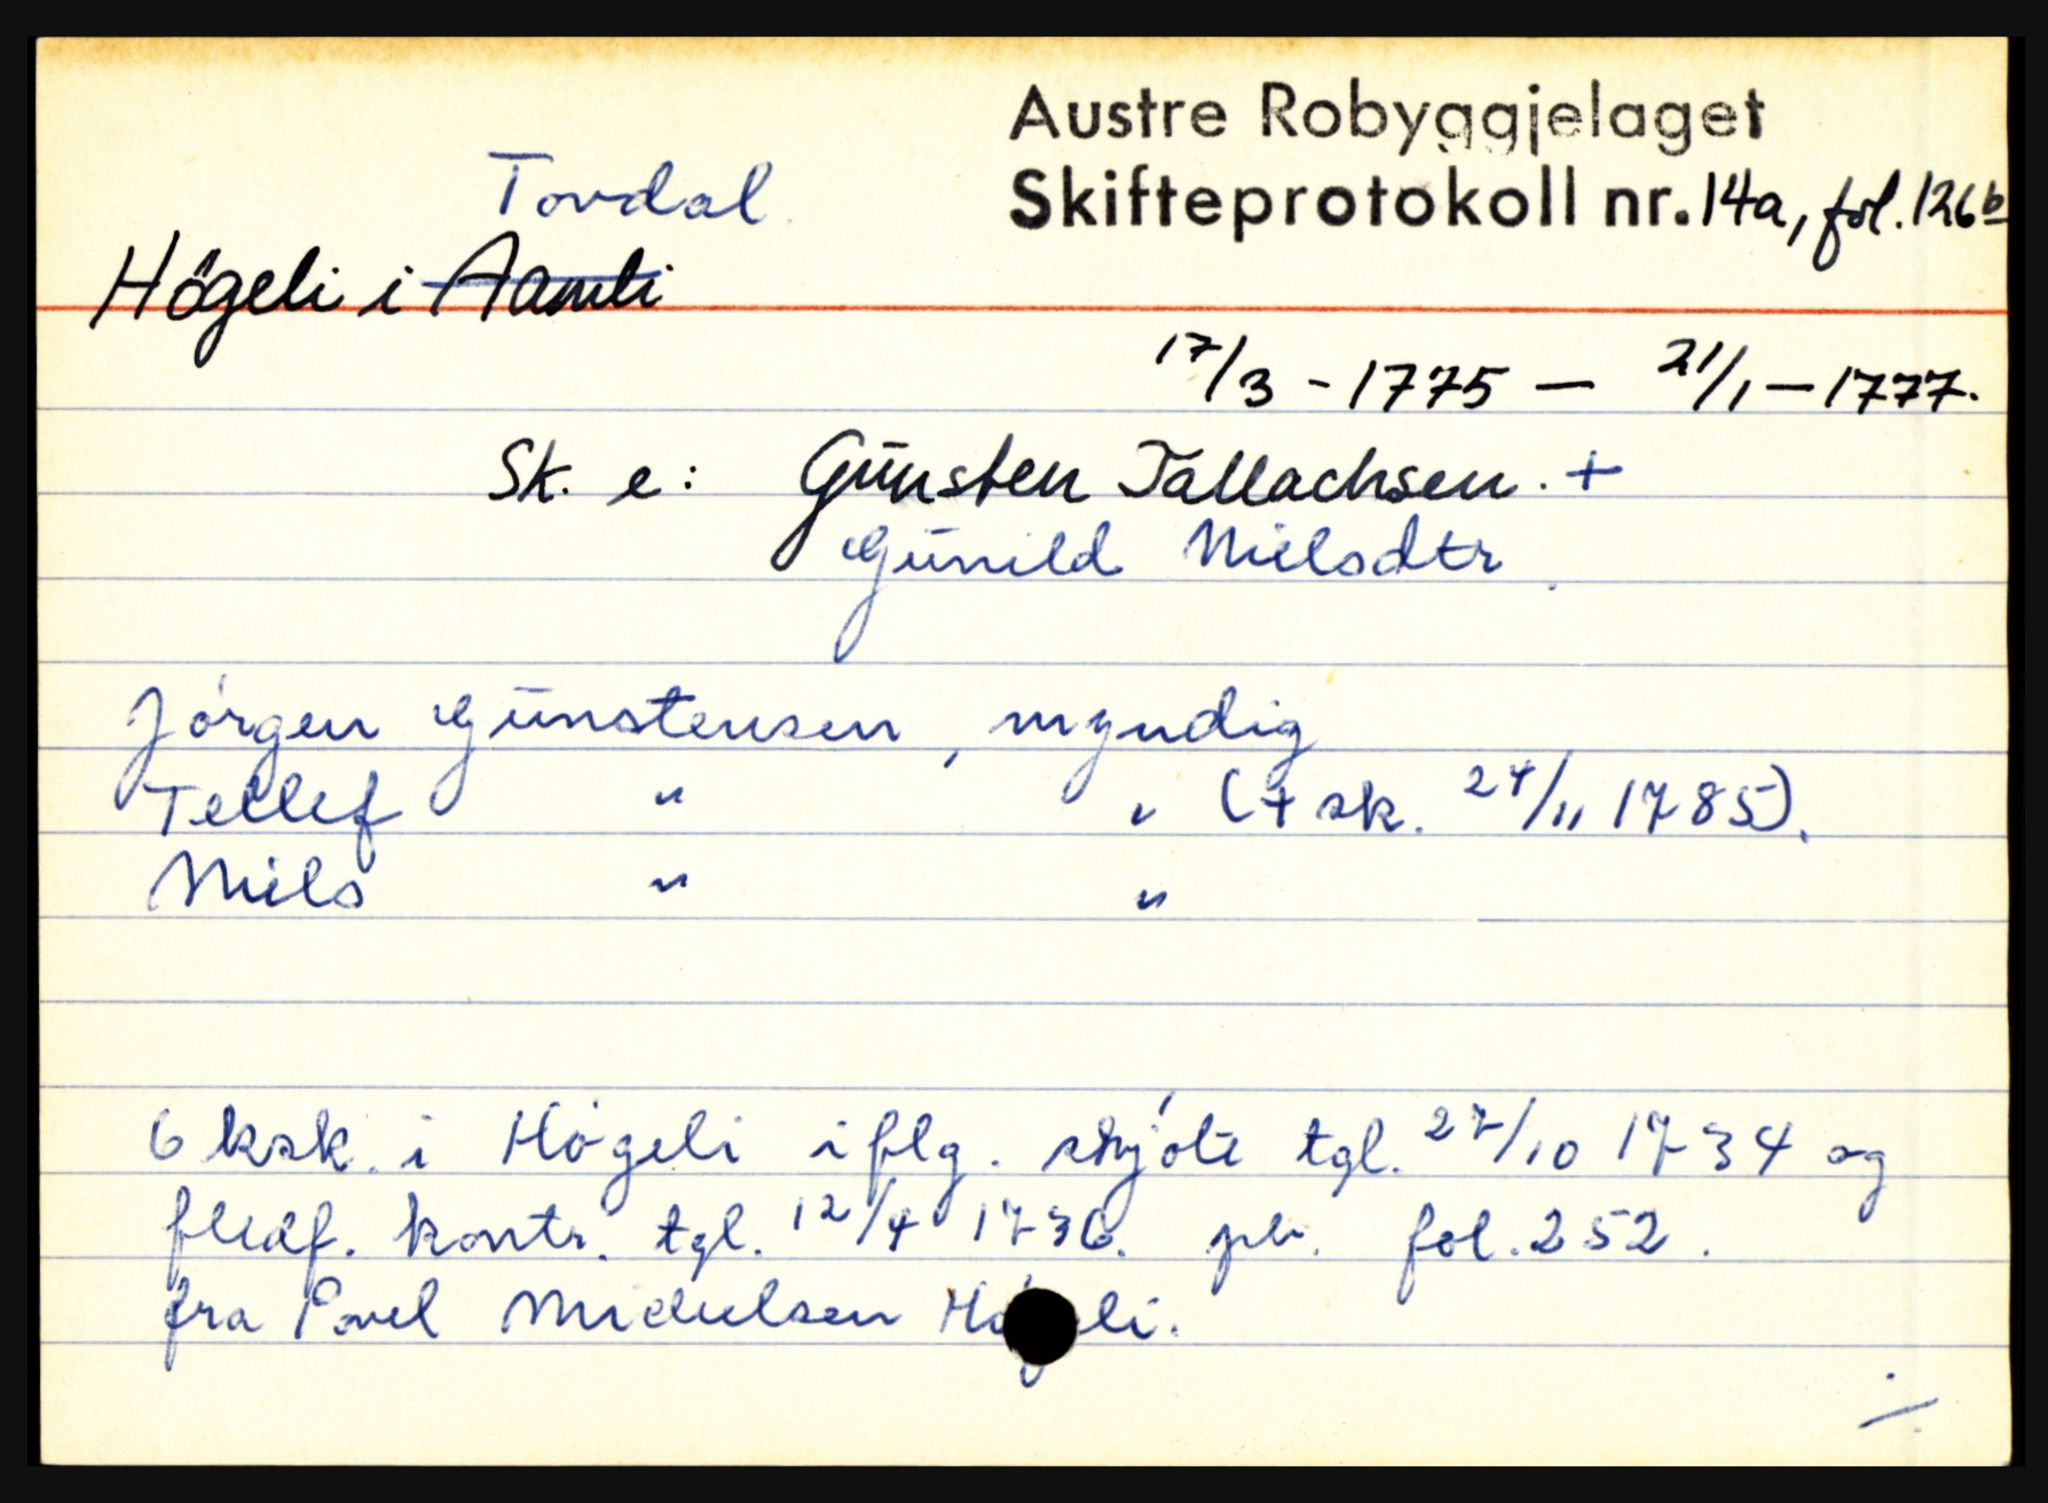 Austre Robyggjelaget
Skifteprotokoll nr. 14a, fol. 126b
Tovdal
Högeli i Aamli
17/3 - 1775 — 21/1 — 1777.
Sk. e: Gūnsten Tallachsen. +
Gūnild Nielsdtr.
Jórgen Gūnstensen, myndig
Tellef " " (+ sk. 24/11 1785).
Niels " "
6 ksk. i Hógeli iflg. skjóte tgl. 27/10 1734 og
kontr. tgl. 12/4 1736. fol. 252.
fra Povel Michelsen Hógeli.